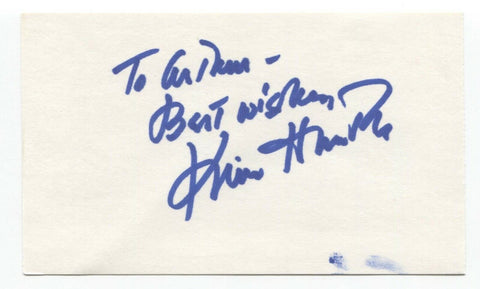 To Arthur -
Best wishes,
Kim Hunter